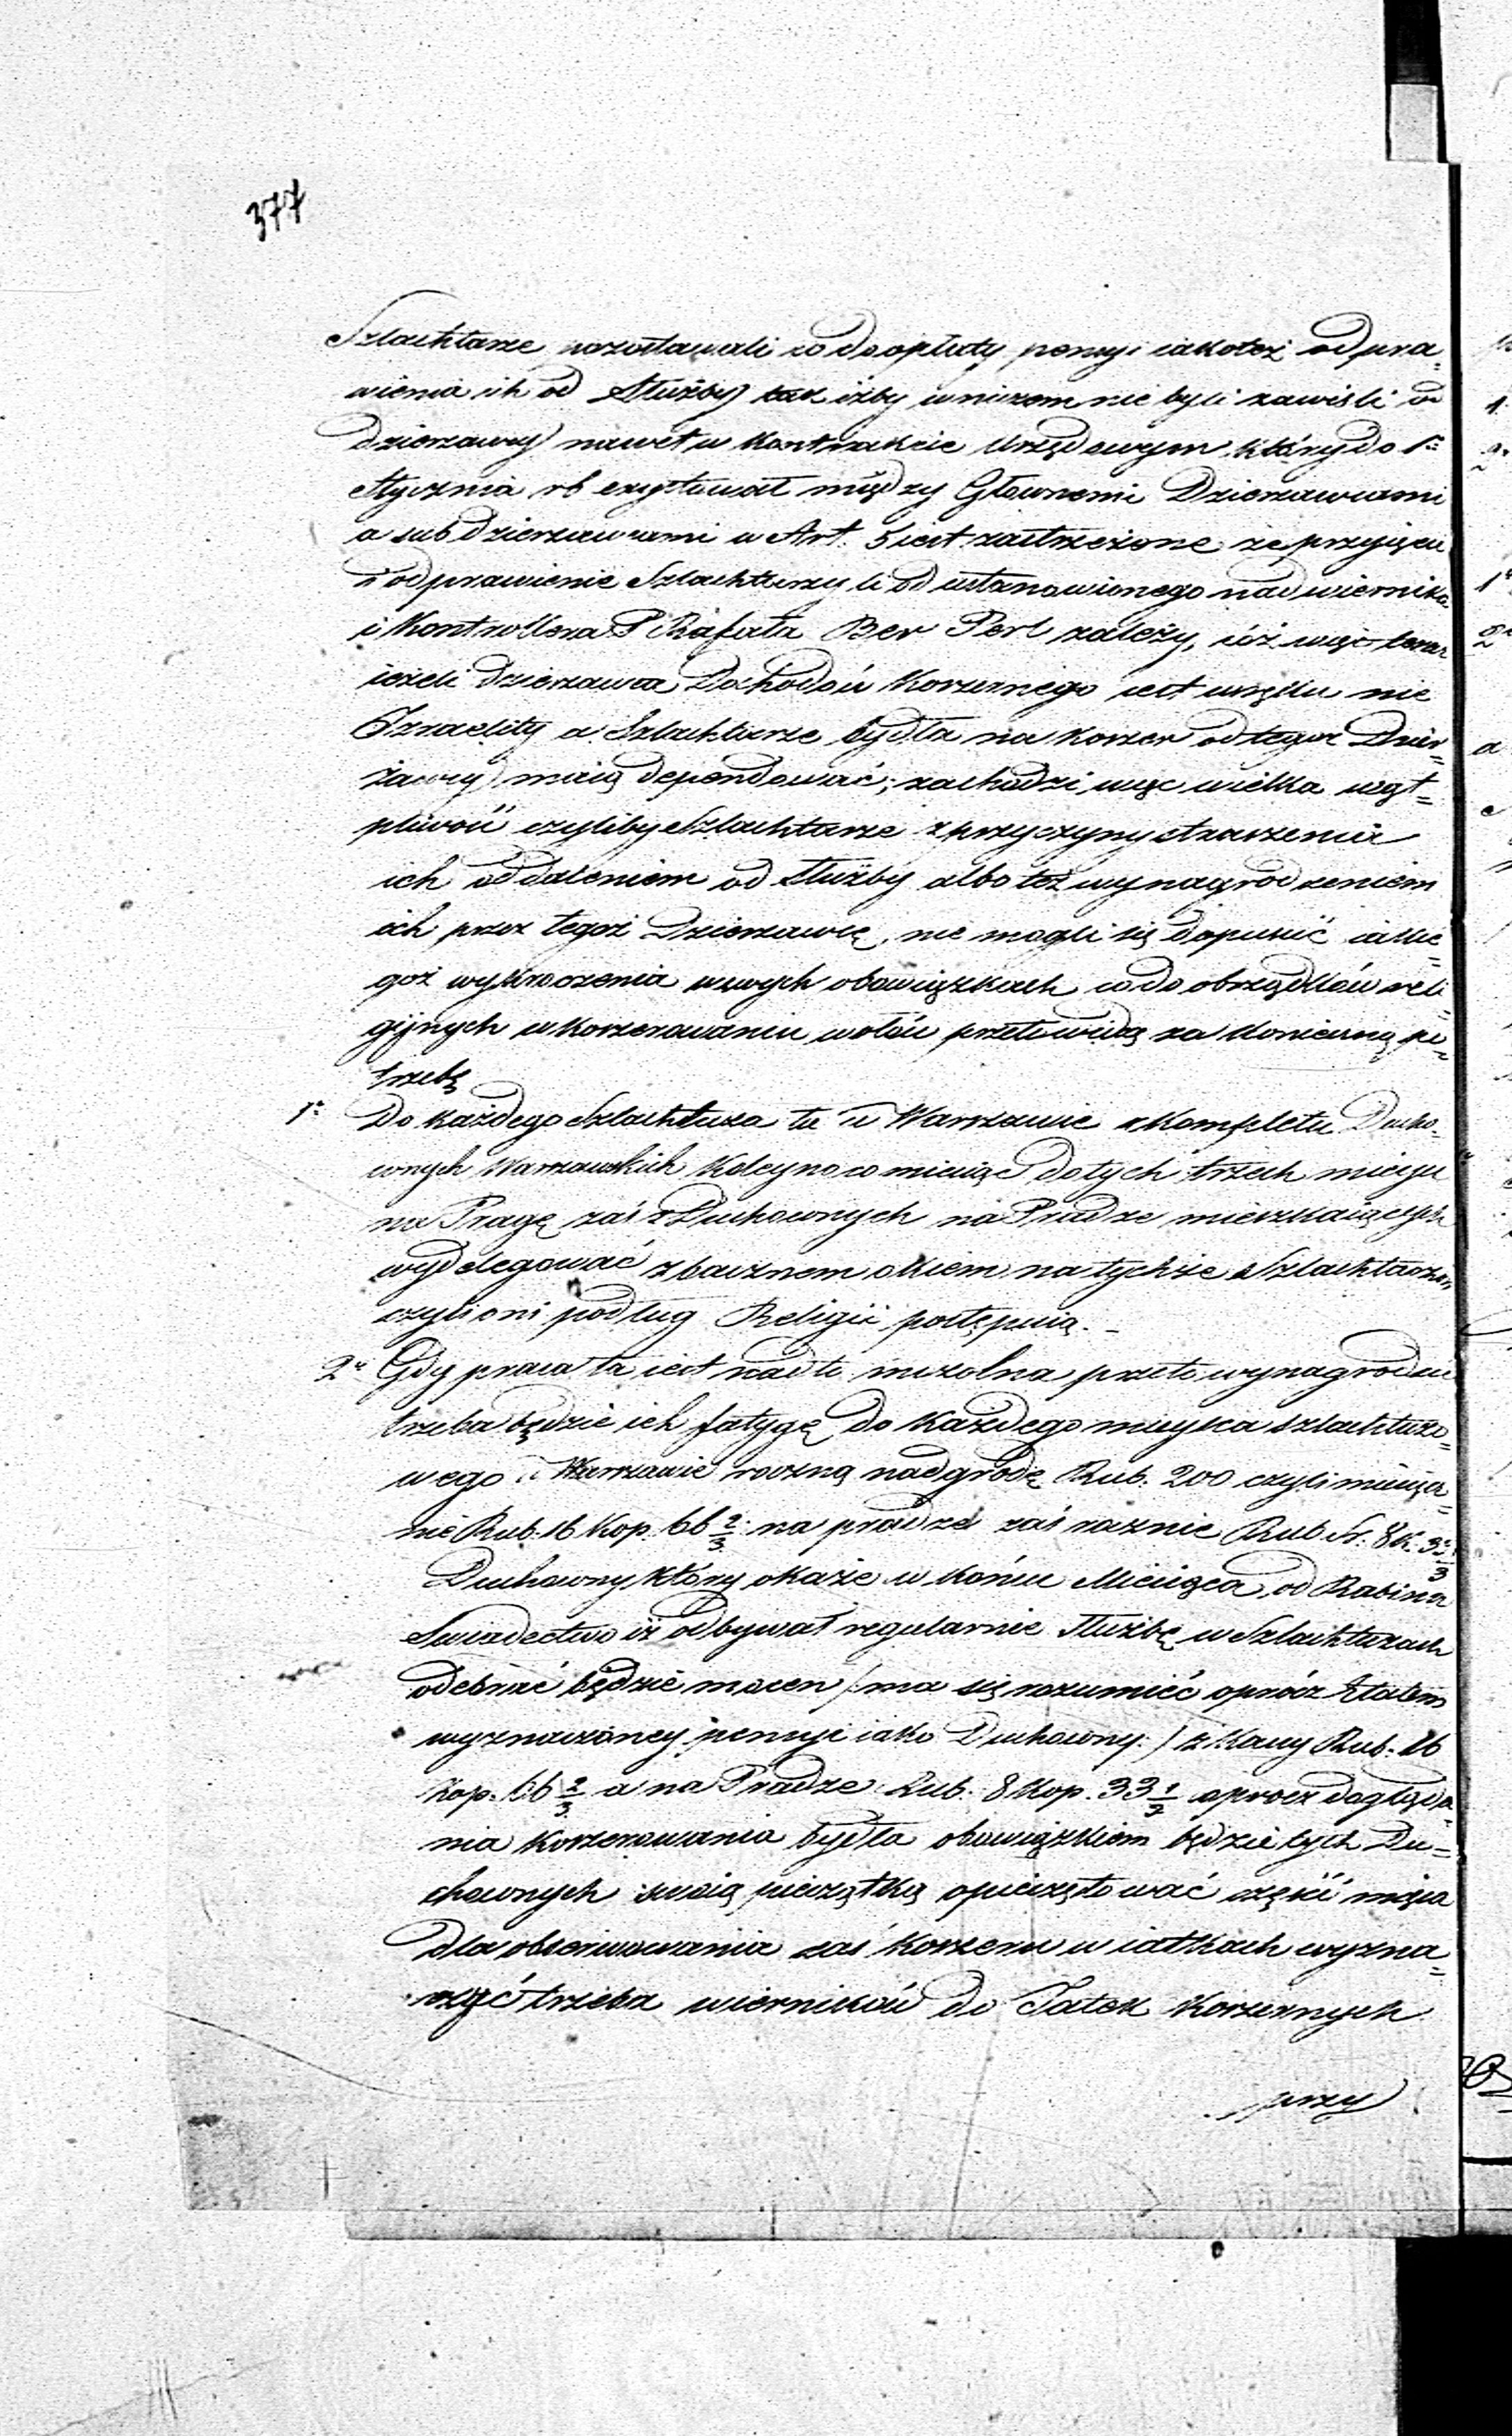 377
Szlachtarze pozostawali co do opłaty pensyi iakoteż odpra=
wienia ich od Służby tak iżby w niczem nie byli zawiśli od
Dzierzawcy nawet w Kontrakcie Urzędowym który do 1o
Stycznia rb exystował między Głownemi Dzierzawcami
a sub dzierzawcami w Art. 5 iest zastrzeżone że przyięcie
i odprawienie Szlachtarzy li od ustanowionego nad wiernika
i Kontrollera P Rafała Ber Perl zależy, cóż więc teraz
ieżeli dzierzawa Dochodów Korzernego iest w ręku nie
Izraelity a Szlachtarze bydła na Korzer od tegoż Dzier=
żawcy maią dependować; zachodzi więc wielka wąt=
pliwość czyliby Szlachtarze z przyczyny straszenia
ich oddaleniem od Służby albo też wynagrodzeniem
ich przez tegoż Dzierzawcę, nie mogli się dopuścić iakie=
goż wykroczenia w swych obowiązkach co do obrządków reli=
gijnych w Korzerowaniu wołów przeto widzę za Konieczną po=
trzebę
1o Do każdego Szlachtuza tu w Warszawie z Kompletu Ducho=
wnych Warszawskich Koleyno co miesiąc do tych trzech mieysc
na Pragę zaś z Duchownych na Pradze mieszkaiących
wydelegować z bacznem okiem na tychże Szlachtarzom
czyli oni podług Religii postępuią. –
2o Gdy praca ta iest nadto mozolna przeto wynagrodzić
trzeba będzie ich fatygę do Każdego mieysca szlachtuzo=
wego w Warszawie roczną nadgrodę Rub. 200 czyli miesią=
nie Rub. 16 Kop. 66 2/3 na pradze zaś Rub Sr. 8 K. 33 1/3
Duchowny który okaże w końcu Miesiąca od Rabina
Swiadectwo iż odbywał regularnie Służbę w Szlachtuzach
odebrać będzie mocen /: ma się rozumieć oprócz Etatem
wyznaczoney pensyi iako Duchowny :/ z Kassy Rub. 16
Kop. 66 2/3 a na Pradze Rub. 8 Kop. 33 1/3 oprocz dogląda=
nia Korzerowania bydła obowiązkiem będzie tych Du=
chownych swoią pieczątką opieczętować części mięsa
dla obserwowania zaś Korzeru w iatkach wyzna=
czyć trzeba wierników do Jatek Korzernych
przy